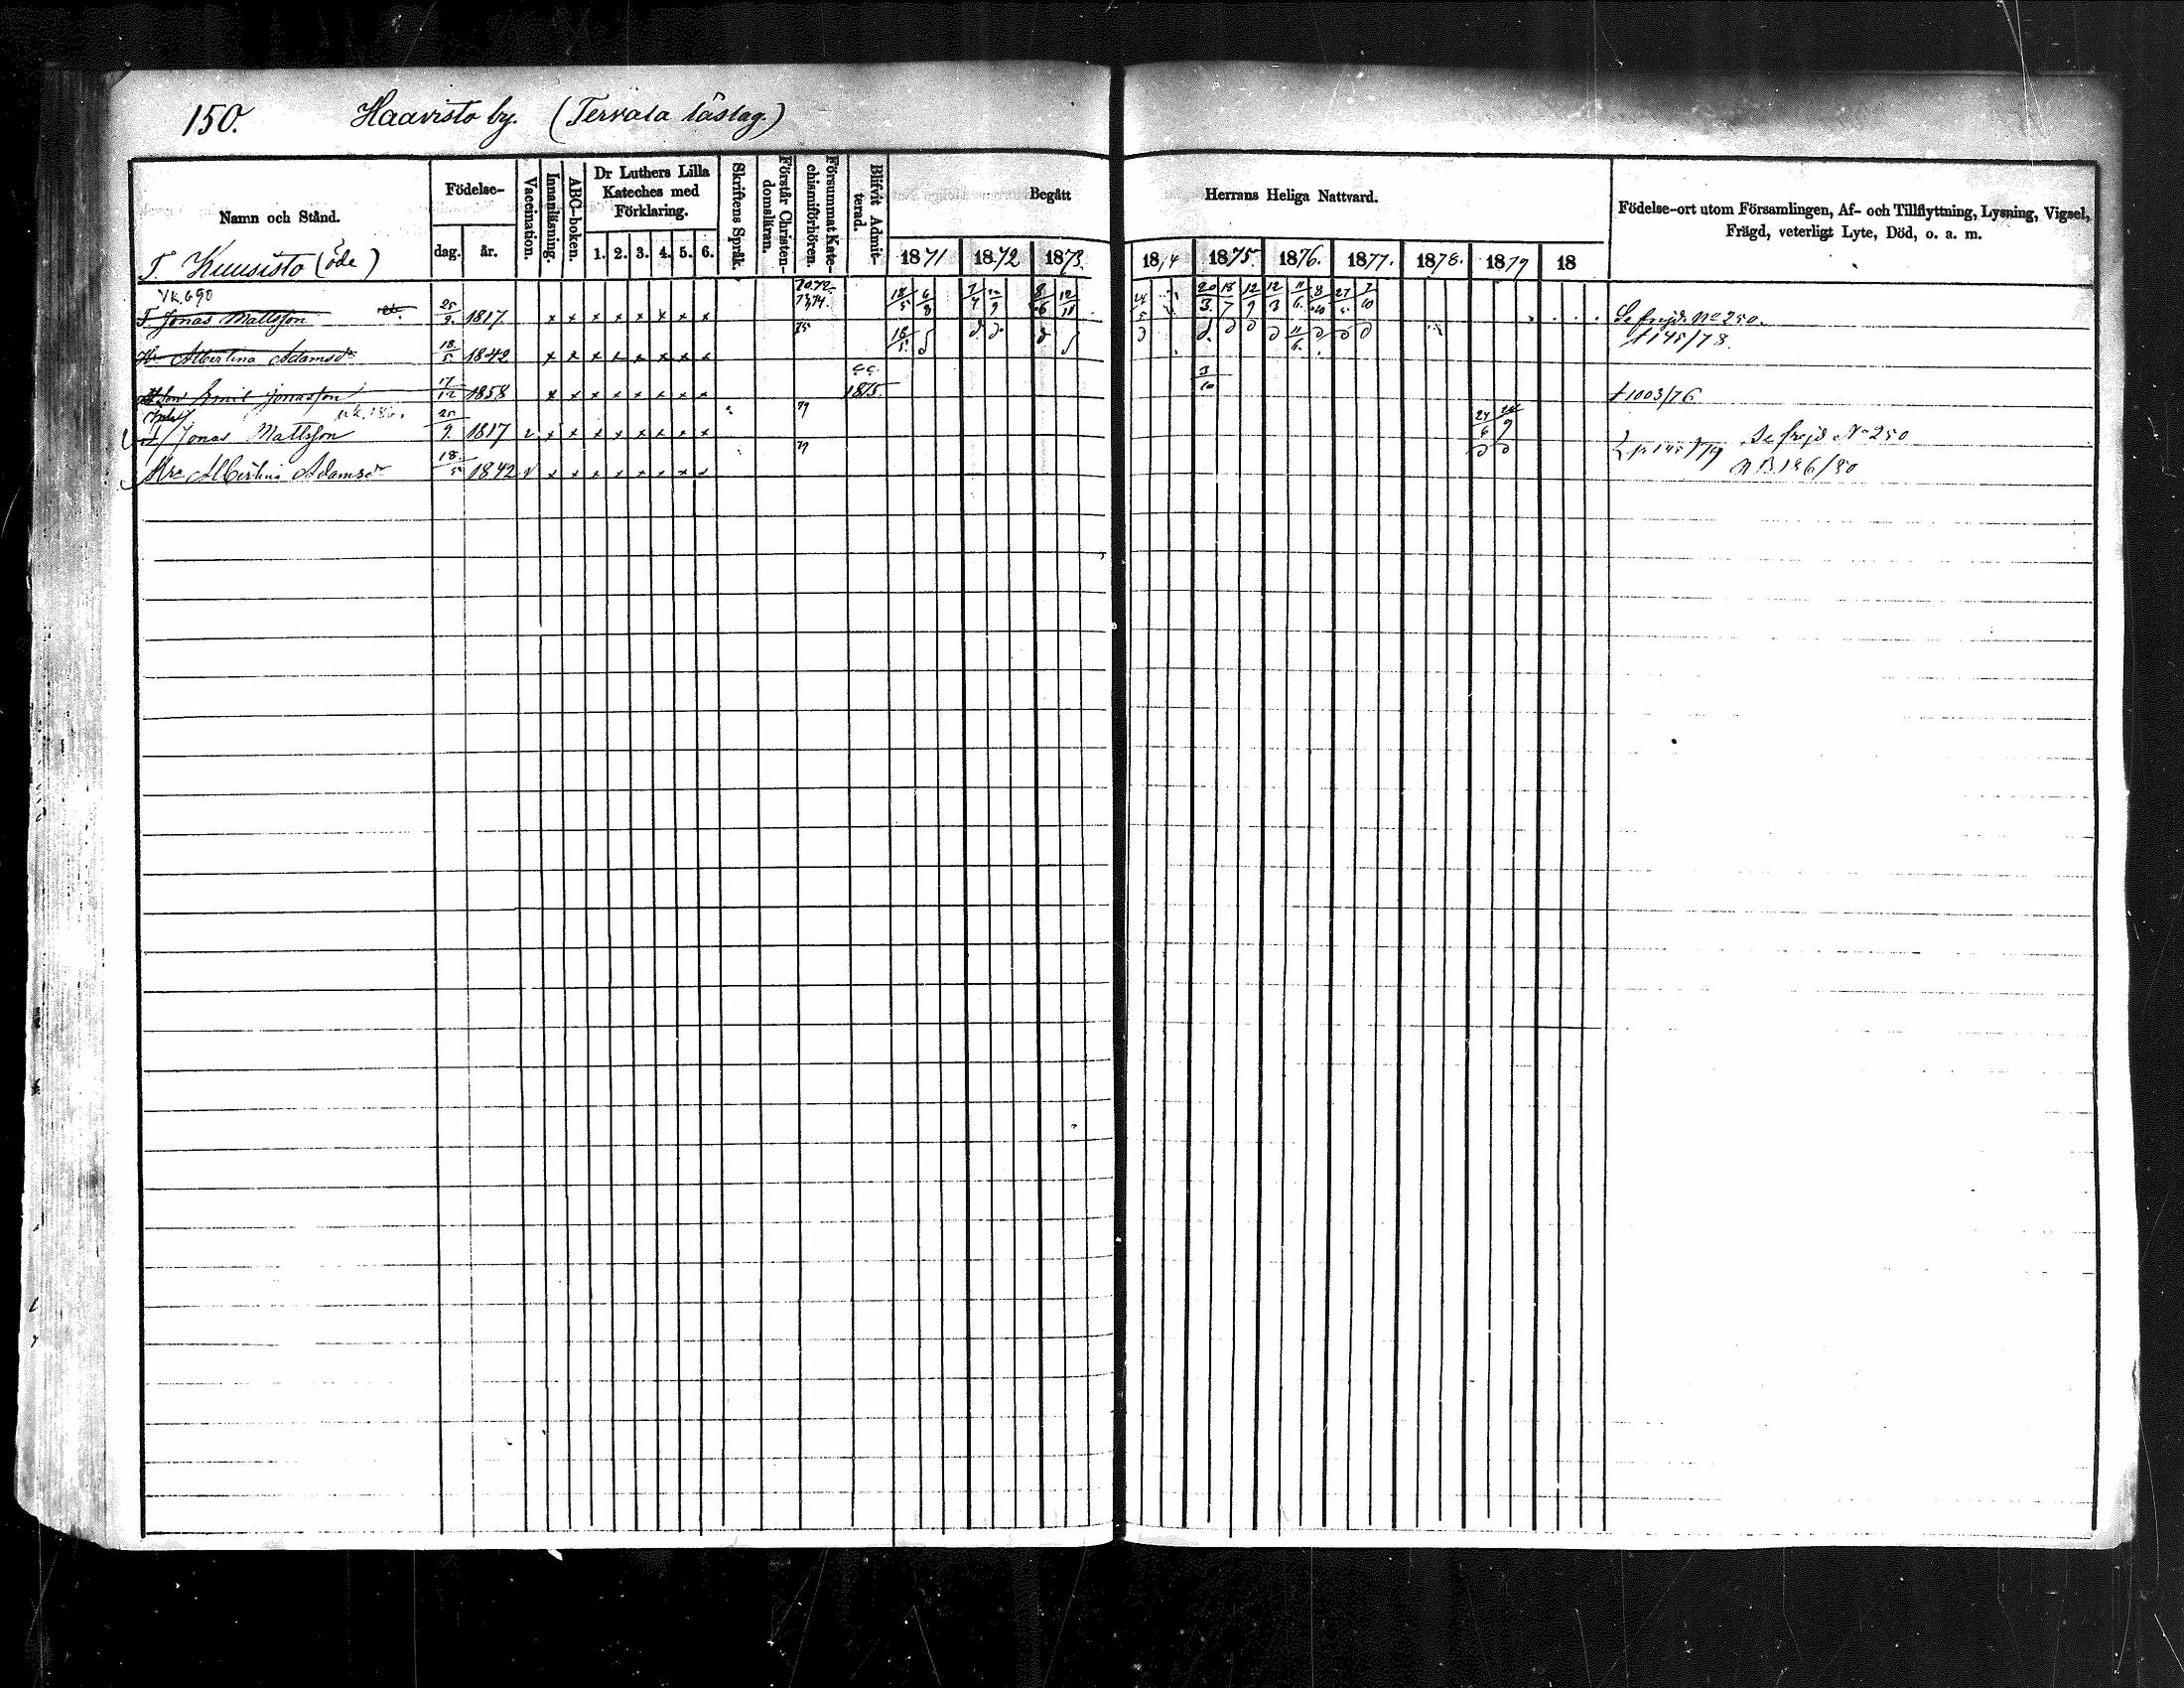 150. Haavisto by. (Tervala läslag.)
Namn och Stånd.
Födelse-
dag. år.
Vaccination.
Innanläsning.
ABC-boken.
Dr Luthers Lilla
Kateches med
Förklaring.
1. 2. 3. 4. 5. 6.
Skriftens Språk.
Förstår Christen-
domsläran.
Försummat Kate-
chismiförhören.
Blifvit Admit-
terad.
Begått Herrans Heliga Nattvard.
1871 1872 1873. 1874. 1875. 1876. 1877. 1878. 1879 18
Födelse-ort utom Församlingen, Af- och Tillflyttning, Lysning, Vigsel,
Frägd, veterligt Lyte, Död, o. a. m.
T. Kuusisto (öde)
Vk. 690
T. Jonas Mattsson 25/9. 1817 x x x x x x x x Se frejd. No 250.
Albertina Adamsdr 18/5. 1842 x x x x x x x x 75 145/78.
Emil Jonasson 17/12 1858 x x x x x x x x 1875. 3/10 1003/76
Jonas Mattsson 25/9. 1817 v x x x x x x x x 79 24/6 Se frejd No 250
Albertina Adamsdr 18/5 1842 v x x x x x x x x 79 145/79
186/80